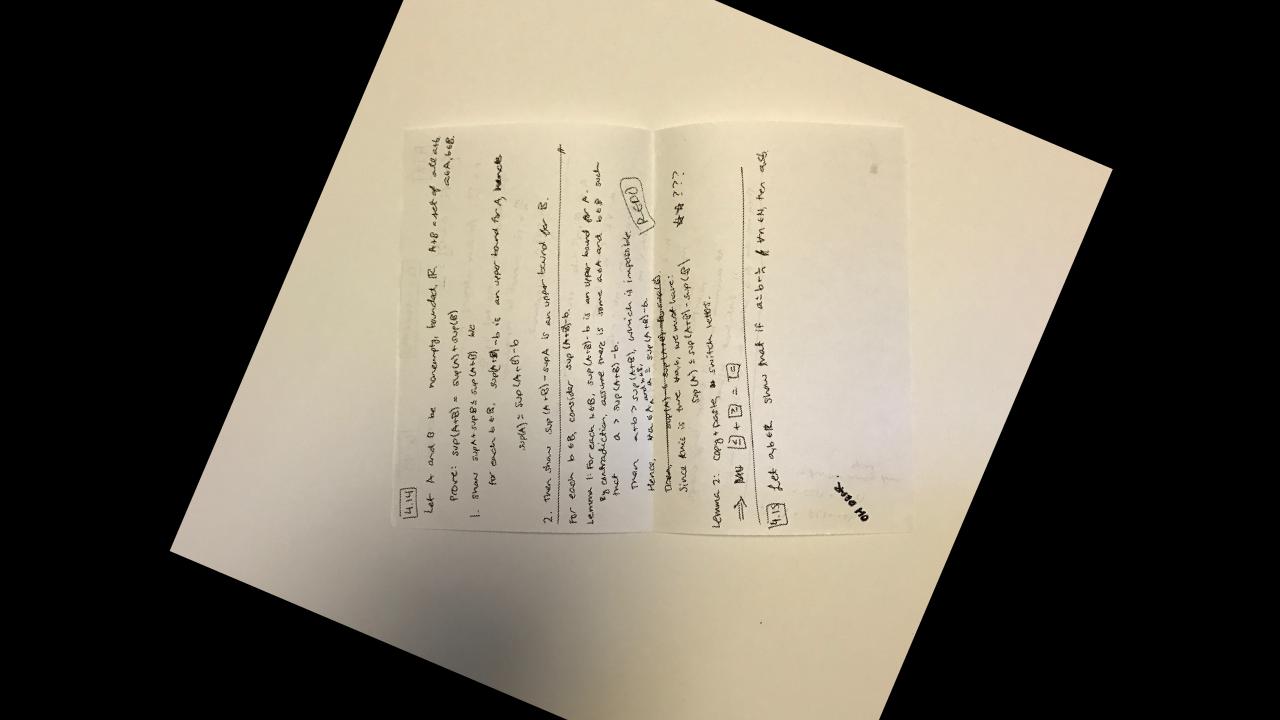 4.14
Let A and B be nonempty, bounded, ℝ A+B = set of all a+b
a∈A, b∈B.
Prove: sup(A+B) = sup(A) + sup(B)
1. Show supA + supB ≤ sup(A+B) We
for each b∈B, sup(A+B)-b is an upper bound for A, hence
sup(A) ≤ sup(A+B)-b
2. Then show sup(A+B) - supA is an upper bound for B.
For each b∈B, consider sup(A+B)-b.
Lemma 1: For each b∈B, sup(A+B)-b is an upper bound for A.
By contradiction, assume there is some a∈A and b∈B such
that a > sup(A+B)-b.
Then a+b > sup(A+B), which is impossible. REDO
Hence, ∀a∈A and b∈B, a ≤ sup(A+B)-b.
Since this is true ∀a,b, we must have:
sup(A) ≤ sup(A+B) - sup(B) ☆☆ ???
Lemma 2: copy+paste, switch letters.
⟹ 1 + 2 =
4.15 Let a,b∈ℝ show that if a ≤ b+1/n ∀n∈N, then a≤b.
OH DEAR.